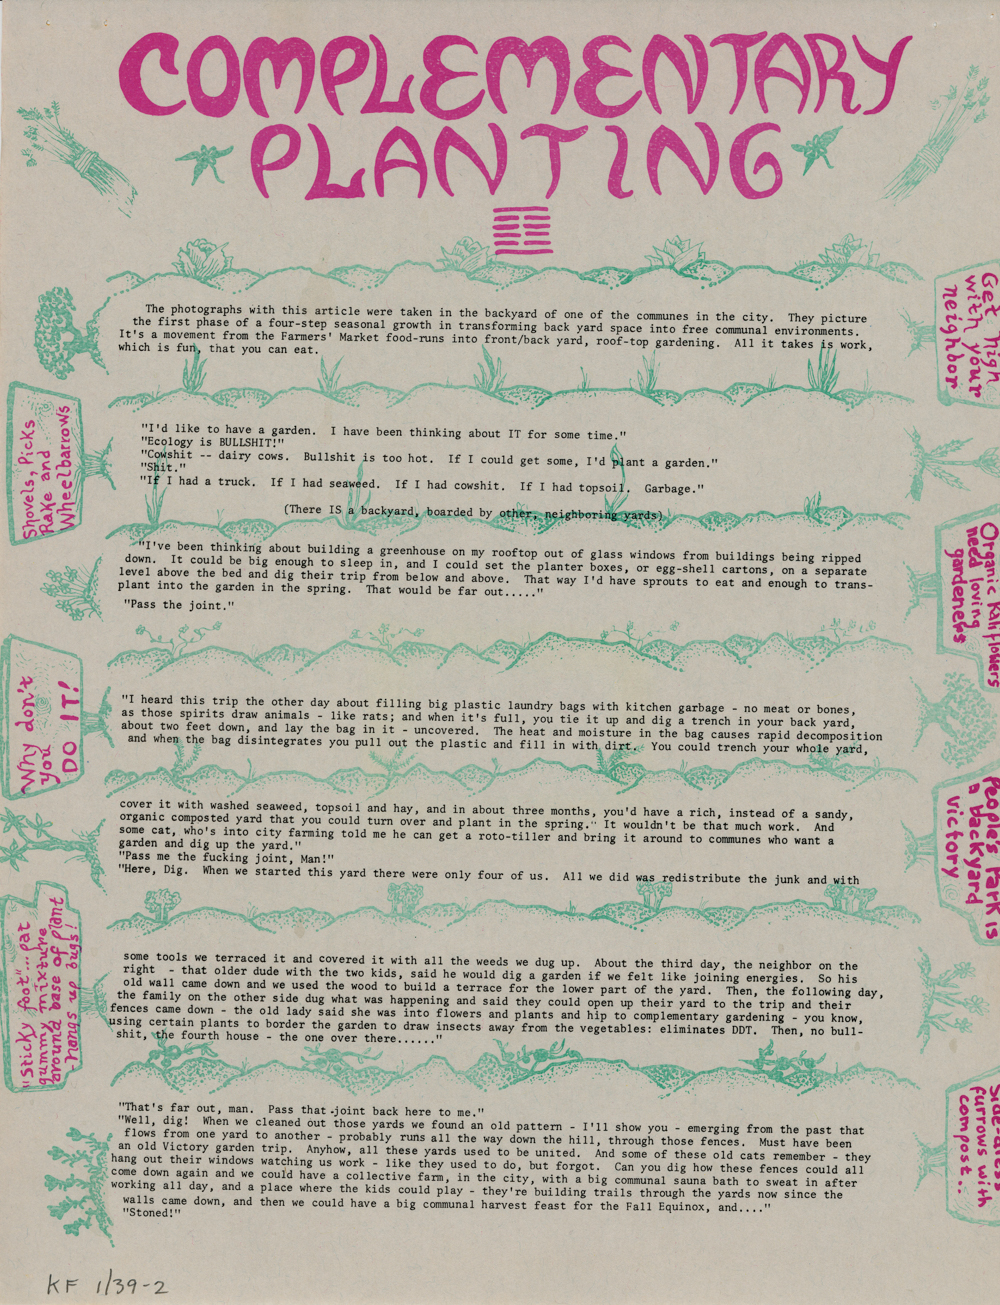 COMPLEMENTARY
PLANTING
The photographs with this article were taken in the backyard of one of the communes in the city. They picture
the first phase of a four-step seasonal growth in transforming back yard space into free communal environments.
It's a movement from the Farmers' Market food-runs into front/back yard, roof-top gardening. All it takes is work,
which is fun, that you can eat.
"I'd like to have a garden. I have been thinking about IT for some time."
"Ecology is BULLSHIT!"
"Cowshit -- dairy cows. Bullshit is too hot. If I could get some, I'd plant a garden."
"Shit."
"If I had a truck. If I had seaweed. If I had cowshit. If I had topsoil. Garbage."
(There IS a backyard, boarded by other, neighboring yards)
"I've been thinking about building a greenhouse on my rooftop out of glass windows from buildings being ripped
down. It could be big enough to sleep in, and I could set the planter boxes, or egg-shell cartons, on a separate
level above the bed and dig their trip from below and above. That way I'd have sprouts to eat and enough to trans-
plant into the garden in the spring. That would be far out....."
"Pass the joint."
"I heard this trip the other day about filling big plastic laundry bags with kitchen garbage - no meat or bones,
as those spirits draw animals - like rats; and when it's full, you tie it up and dig a trench in your back yard,
about two feet down, and lay the bag in it - uncovered. The heat and moisture in the bag causes rapid decomposition
and when the bag disintegrates you pull out the plastic and fill in with dirt. You could trench your whole yard,
cover it with washed seaweed, topsoil and hay, and in about three months, you'd have a rich, instead of a sandy,
organic composted yard that you could turn over and plant in the spring." It wouldn't be that much work. And
some cat, who's into city farming told me he can get a roto-tiller and bring it around to communes who want a
garden and dig up the yard."
"Pass me the fucking joint, Man!"
"Here, Dig. When we started this yard there were only four of us. All we did was redistribute the junk and with
some tools we terraced it and covered it with all the weeds we dug up. About the third day, the neighbor on the
right - that older dude with the two kids, said he would dig a garden if we felt like joining energies. So his
old wall came down and we used the wood to build a terrace for the lower part of the yard. Then, the following day,
the family on the other side dug what was happening and said they could open up their yard to the trip and their
fences came down - the old lady said she was into flowers and plants and hip to complementary gardening - you know,
using certain plants to border the garden to draw insects away from the vegetables: eliminates DDT. Then, no bull-
shit, the fourth house - the one over there......"
"That's far out, man. Pass that joint back here to me."
"Well, dig! When we cleaned out those yards we found an old pattern - I'll show you - emerging from the past that
flows from one yard to another - probably runs all the way down the hill, through those fences. Must have been
an old Victory garden trip. Anyhow, all these yards used to be united. And some of these old cats remember - they
hang out their windows watching us work - like they used to do, but forgot. Can you dig how these fences could all
come down again and we could have a collective farm, in the city, with a big communal sauna bath to sweat in after
working all day, and a place where the kids could play - they're building trails through the yards now since the
walls came down, and then we could have a big communal harvest feast for the Fall Equinox, and...."
"Stoned!"
Shovels, Picks
Rake and
Wheelbarrows
Why don't
you
DO IT!
"Sticky foot"... pat
gummy mixture
around base of plant
-hangs up bugs!
Get high
with your
neighbor
Organic Kaliflowers
need loving
gardeners
People's Park is
a backyard
victory
Side-dress
furrows with
compost..
KF 1/39-2